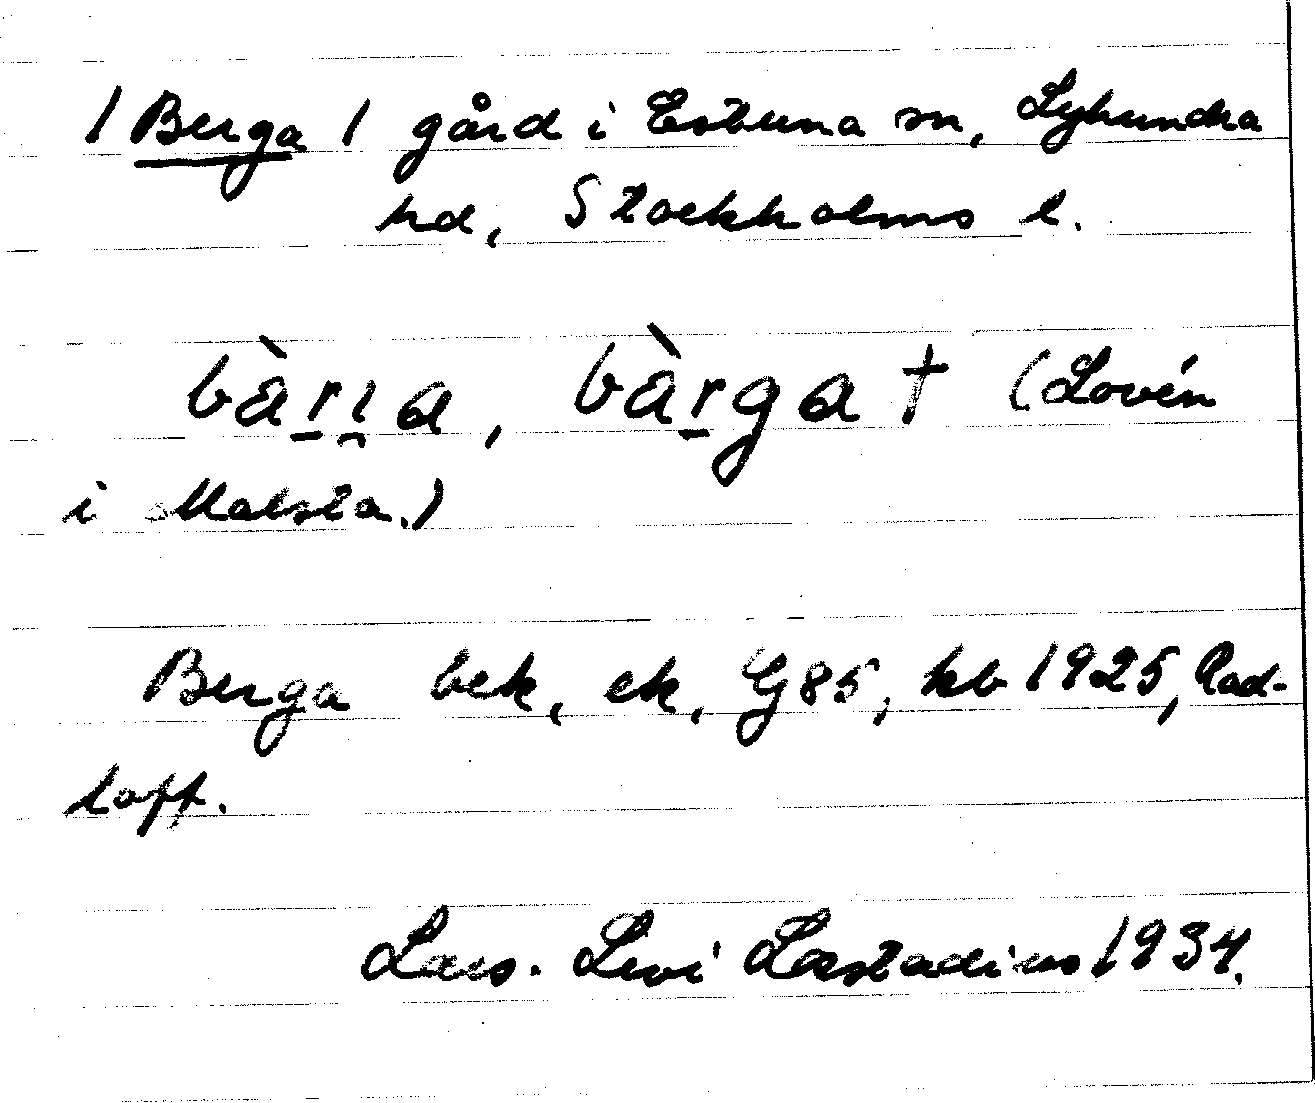 / Berga / gård i Estuna sn, Lyhundra
hd, Stockholms l.
bàr̠ı̯a, bàr̠ga † (Lovén
i Malsta.)
Berga bek, ek, G85, kb 1925, Rad-
loff.
Lars-Levi Læstadius 1934.